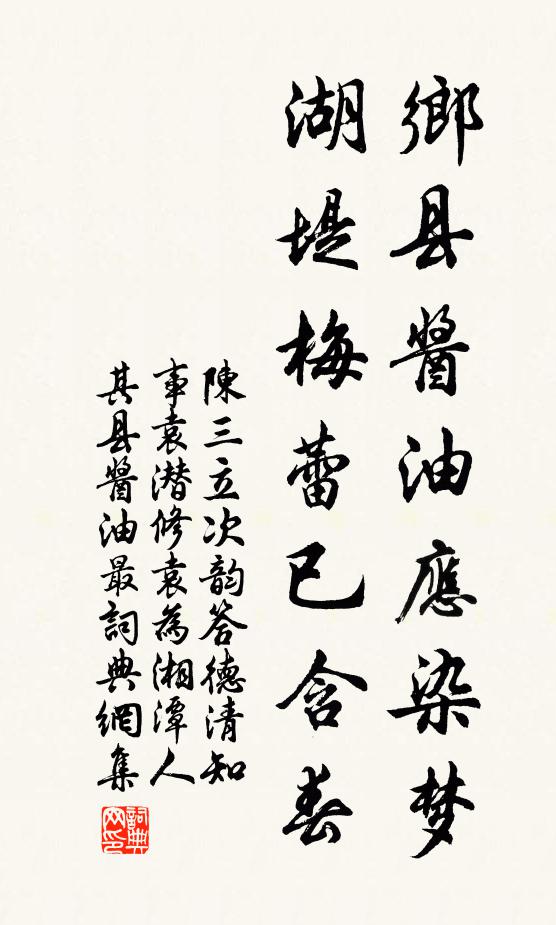 鄉县醬油應染梦
湖堤梅蕾已含春
陳三立次韵答德清知
事袁潜修袁為湘潭人
其县醬油最詞典網集
詞典网印